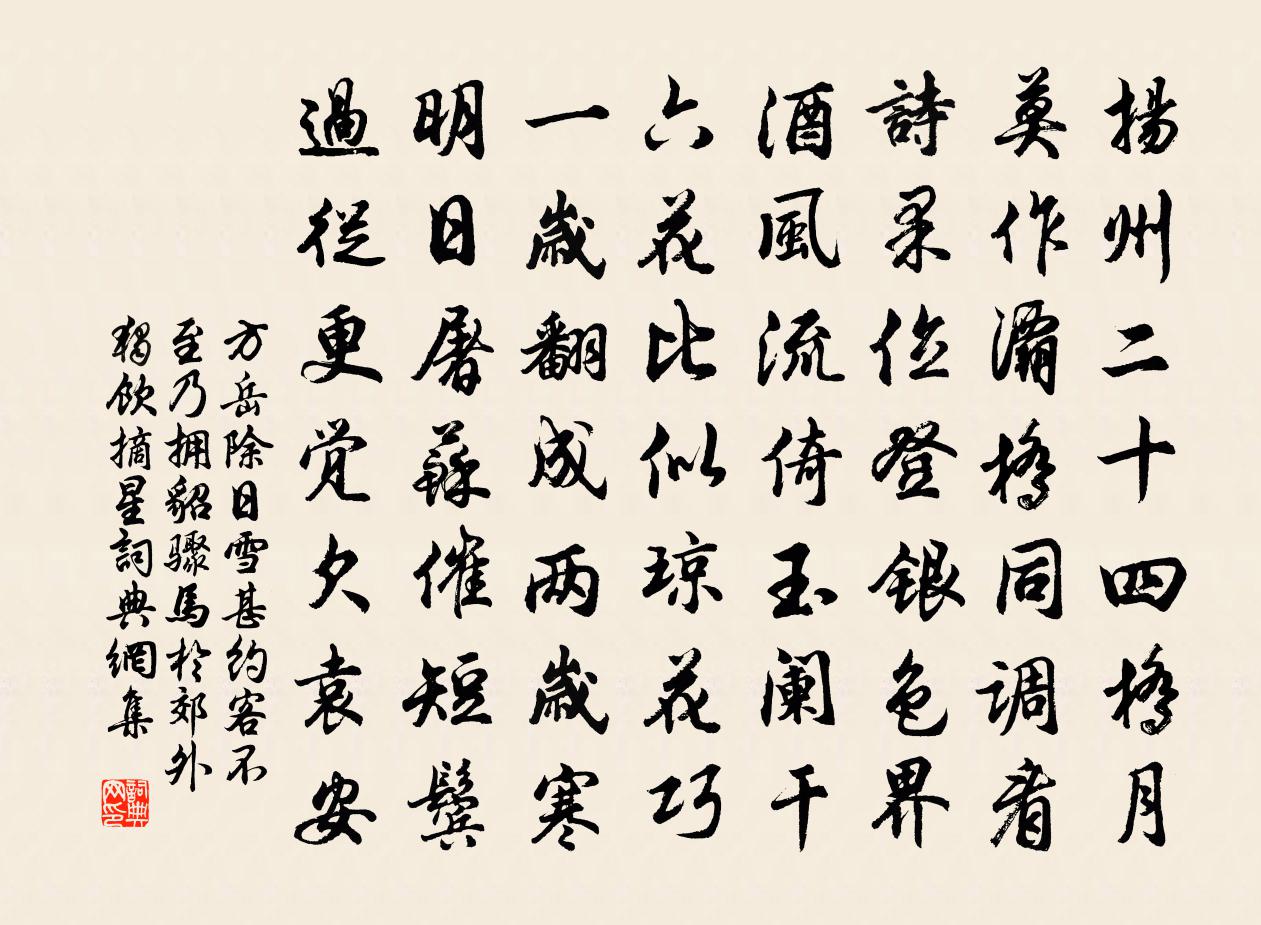 揚州二十四橋月
莫作灞橋同调看
詩果径登銀色界
酒風流倚玉阑干
六花比似琼花巧
一歲翻成两歲寒
明日屠蘇催短鬢
過從更觉欠袁安
方岳除日雪甚約客不
至乃拥貂驟馬於郊外
獨飲摘星詞典網集
詞典网印